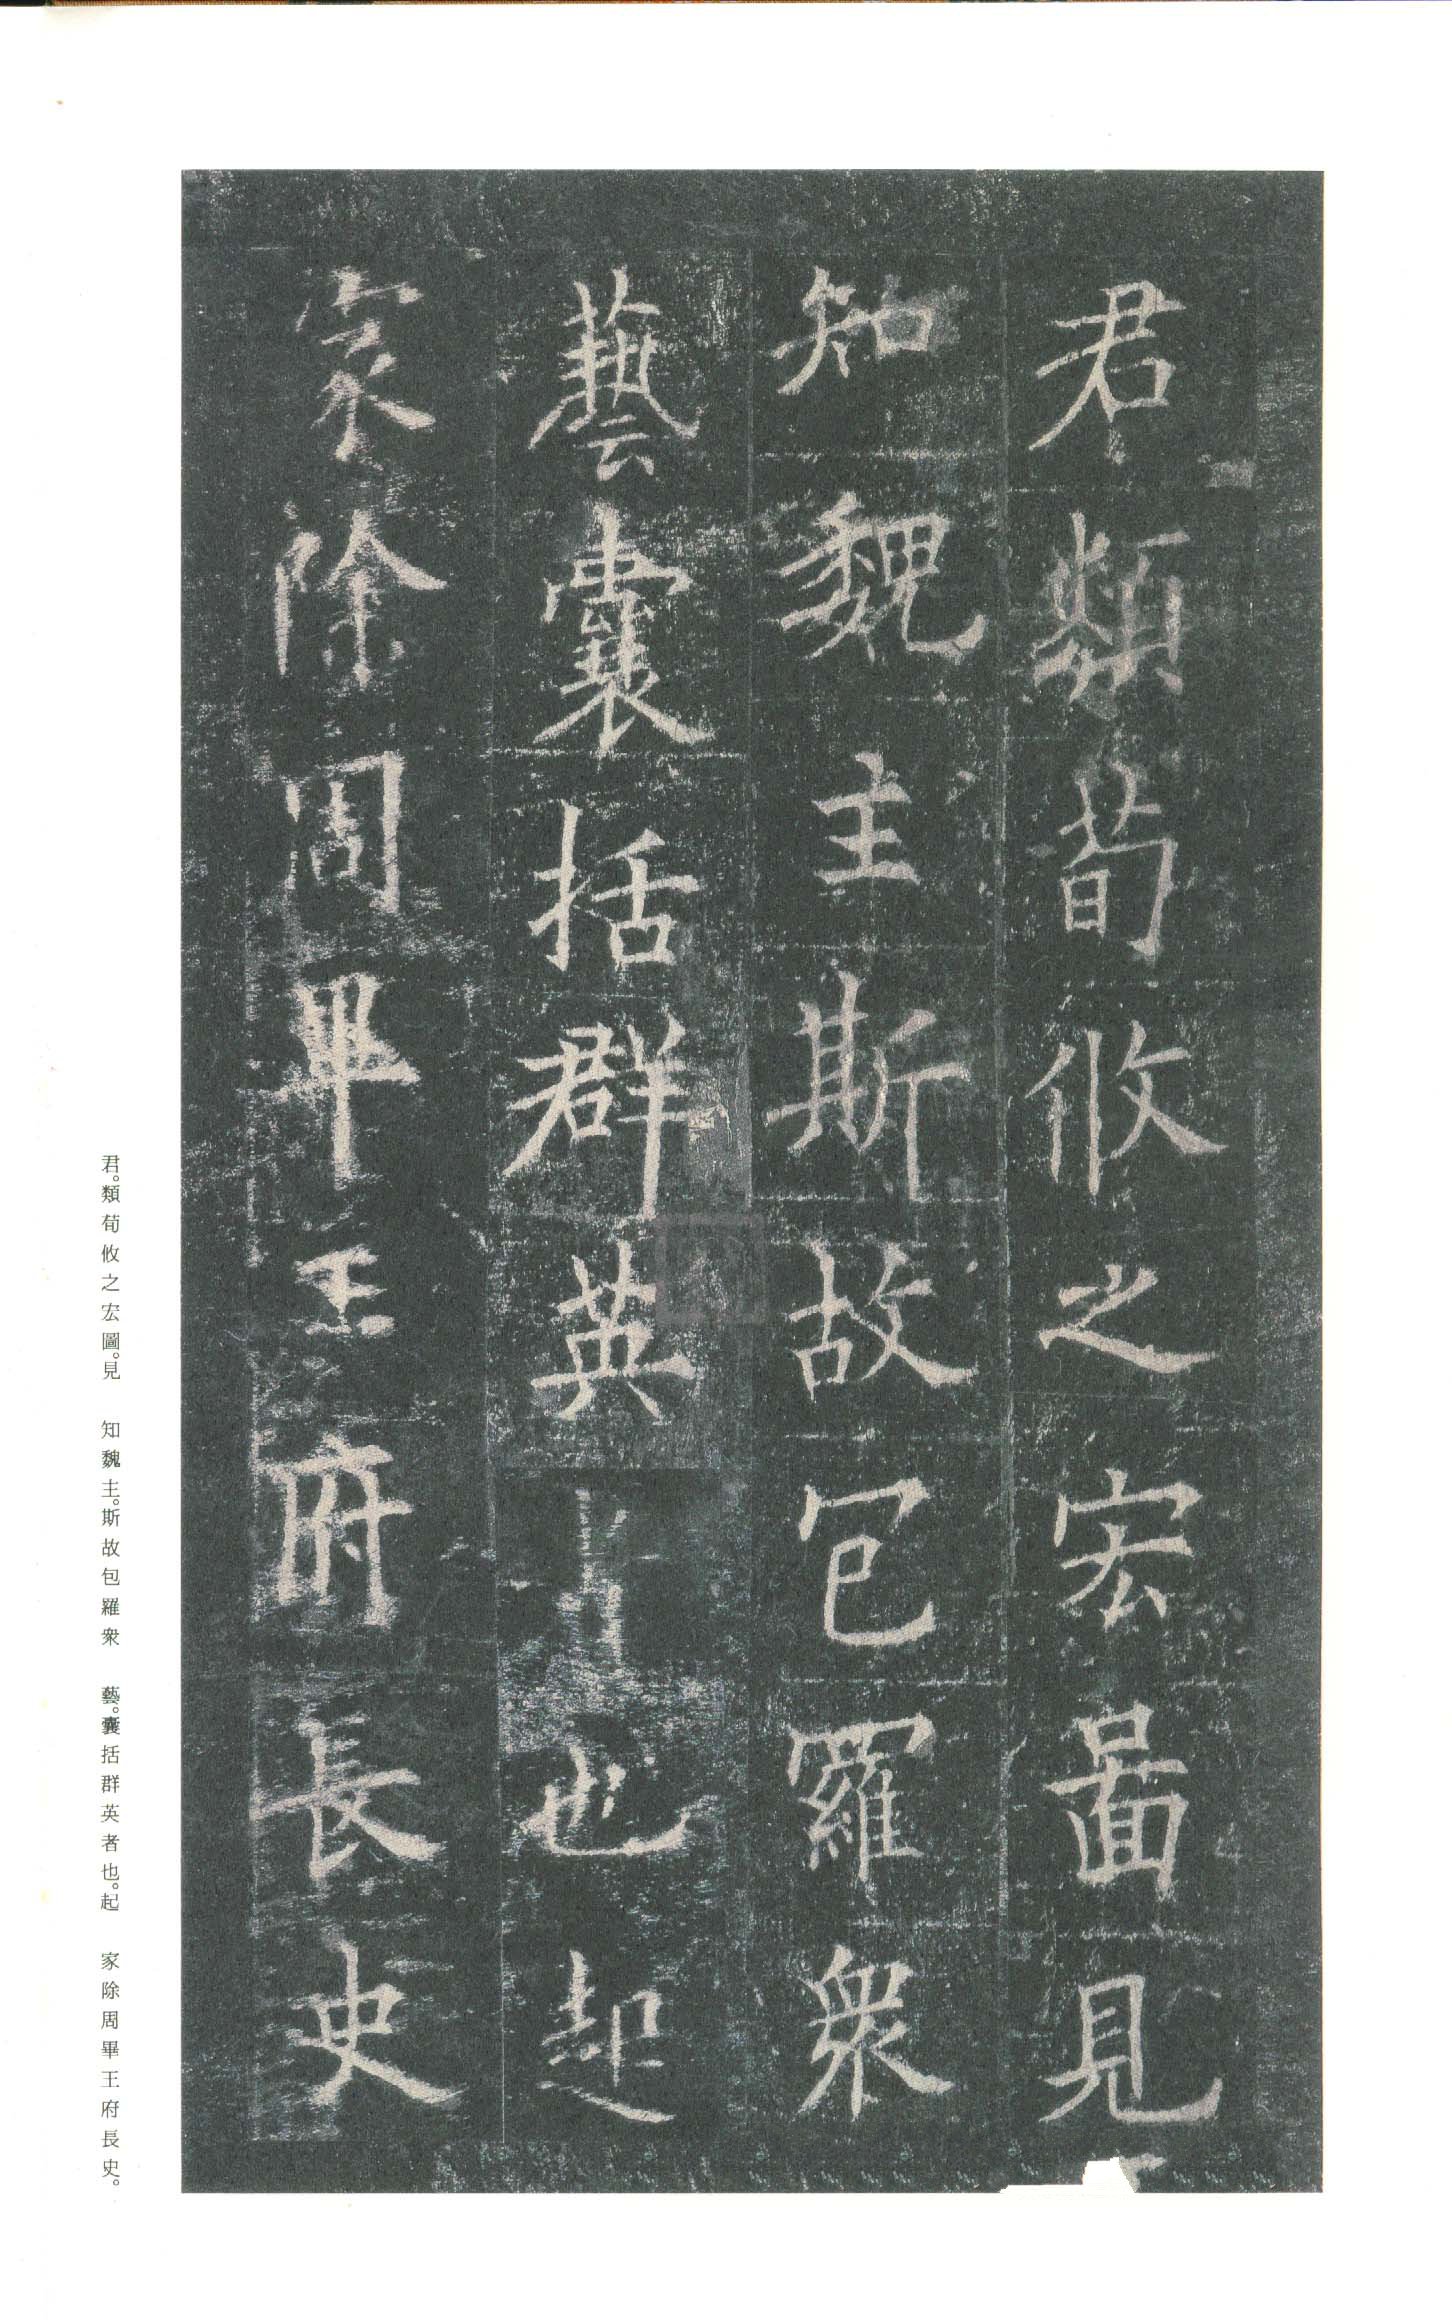 君類荀攸之宏圖見
知魏主斯故包羅衆
藝囊括群英者也起
家除周畢王府長史
君。類荀攸之宏圖。見 知魏主。斯故包羅衆 藝。囊括群英者也。起 家除周畢王府長史。